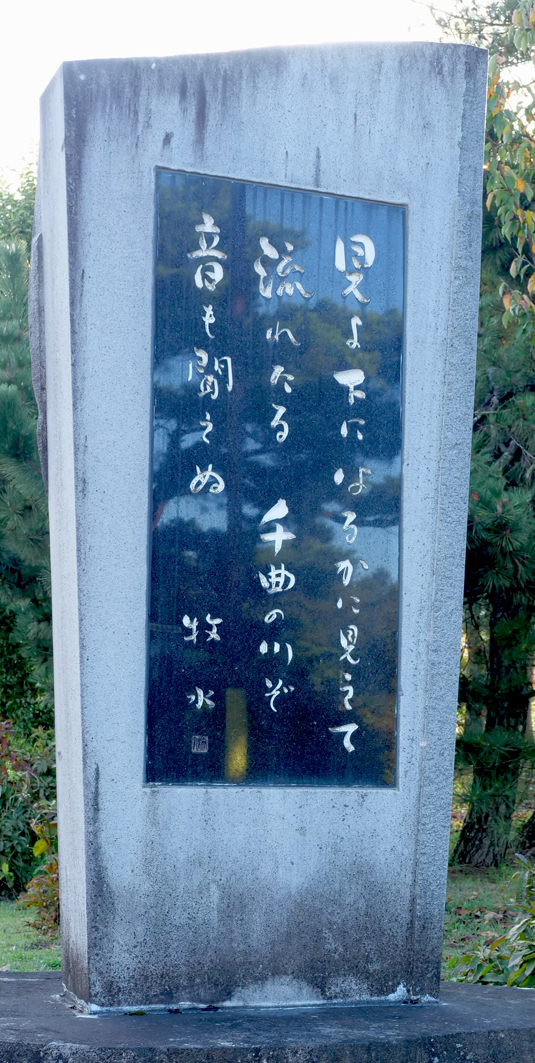 見よ下にはるかに見えて
流れたる 千曲の川ぞ
音も聞えぬ 牧水